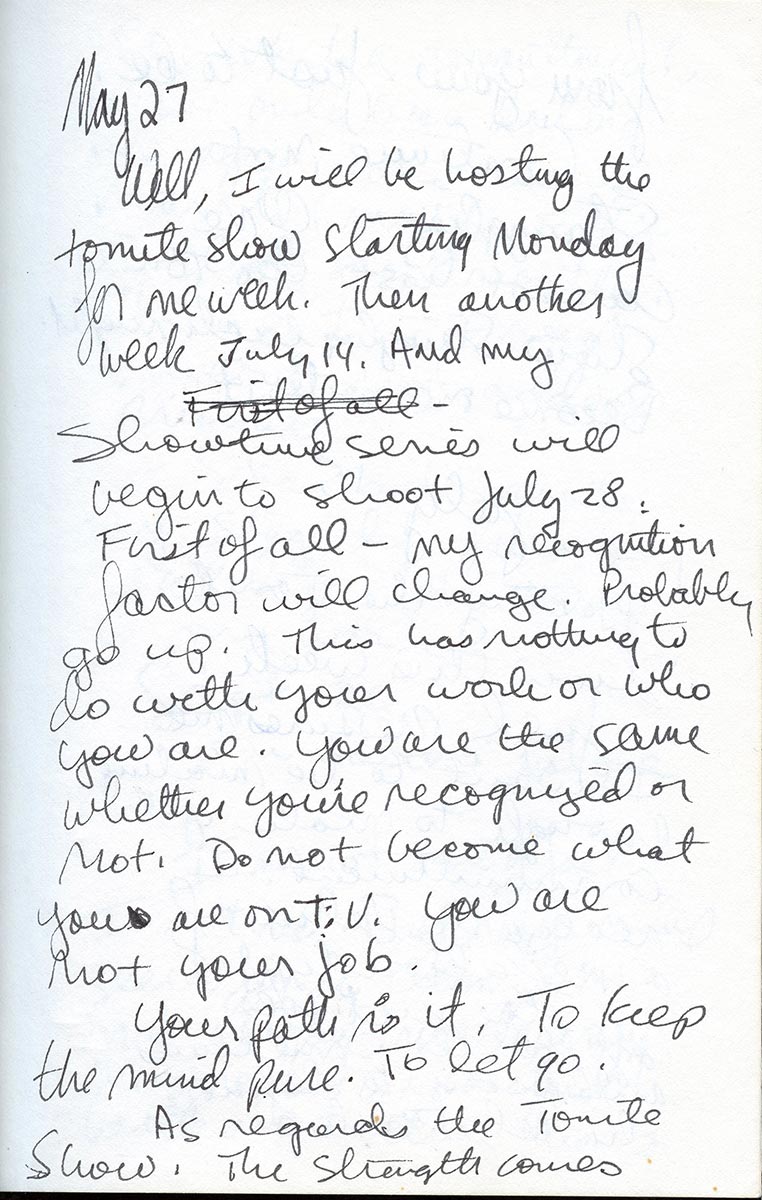 May 27
Well, I will be hosting the
tonite show starting Monday
for one week. Then another
week July 14. And my
First of all –
Showtime series will
begin to shoot July 28.
First of all – my recognition
factor will change. Probably
go up. This has nothing to
do with your work or who
you are. You are the same
whether you're recognized or
not. Do not become what
you are on T.V. You are
not your job.
Your path is it. To keep
the mind pure. To let go.
As regards the Tonite
Show. The strength comes